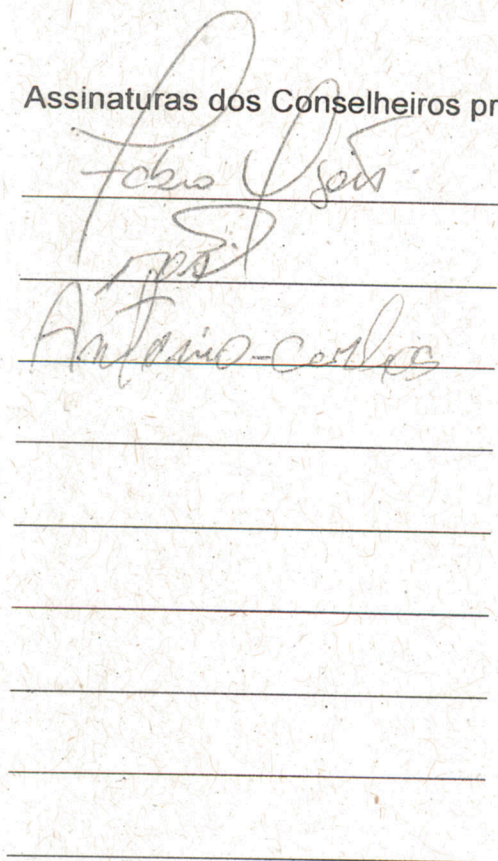 Assinaturas dos Conselheiros pr
Fábio
Antonio-Carlos